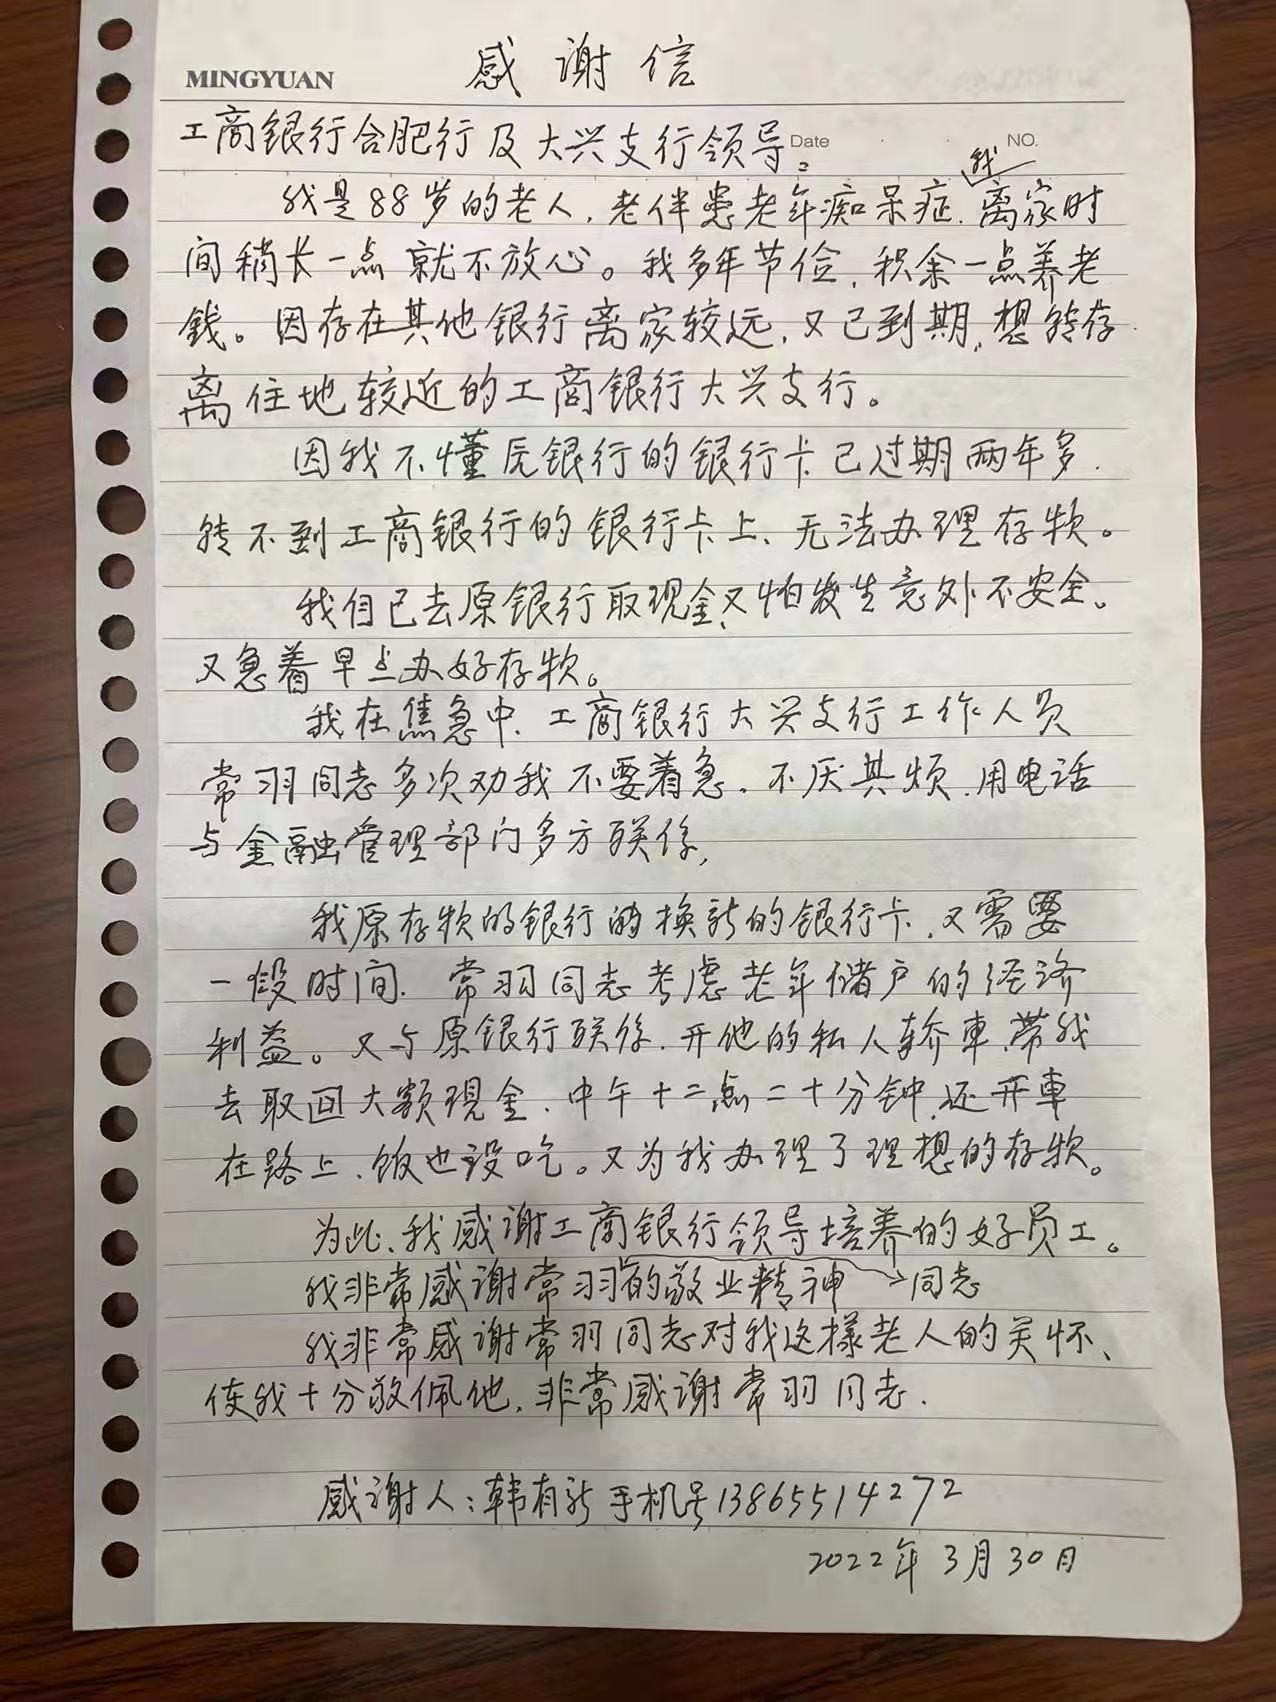 MINGYUAN
感谢信
Date
NO.
工商银行合肥行及大兴支行领导:
我
我是88岁的老人,老伴患老年痴呆症,离家时
间稍长一点就不放心。我多年节俭,积余一点养老
钱。因存在其他银行离家较远,又已到期,想转存
离住地较近的工商银行大兴支行。
因我不懂原银行的银行卡已过期两年多.
转不到工商银行的银行卡上、无法办理存款。
我自己去原银行取现金,又怕发生意外不安全。
又急着早点办好存款。
我在焦急中、工商银行大兴支行工作人员
常羽同志多次劝我不要着急.不厌其烦.用电话
与金融管理部门多方联係,
我原存款的银行的换新的银行卡,又需要
一段时间.常羽同志考虑老年储户的经济
利益。又与原银行联係.开他的私人轿車、带我
去取回大额现金.中午十二点二十分钟,还开車
在路上、饭也没吃。又为我办理了理想的存款。
为此、我感谢工商银行领导培养的好员工。
我非常感谢常羽的敬业精神 同志
我非常感谢常羽同志对我这樣老人的关怀、
使我十分敬佩他,非常感谢常羽同志.
感谢人:韩有新手机号13865514272
2022年3月30日